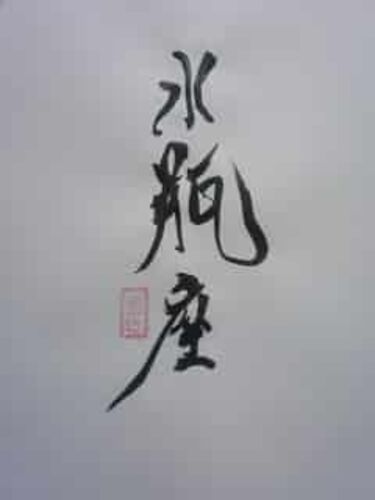 水瓶座